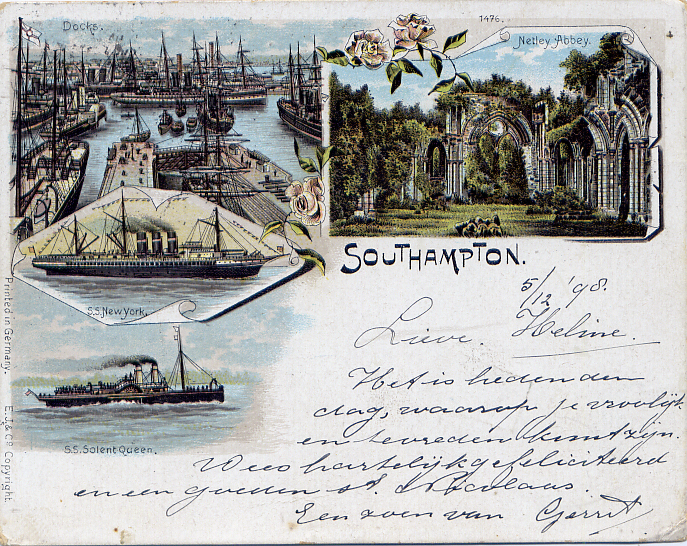 Docks.
1476.
Netley Abbey.
S.S. New York.
SOUTHAMPTON.
S.S. Solent Queen.
Printed in Germany. E.J. & Co. Copyright.
5/12 '98.
Lieve Heline.
Het is heden den
dag, waarop je vroolijk
en tevreden kunt zijn.
Wees hartelijk gefeliciteerd
en een goeden St. Nicolaas.
Een zoen van Gerrit.